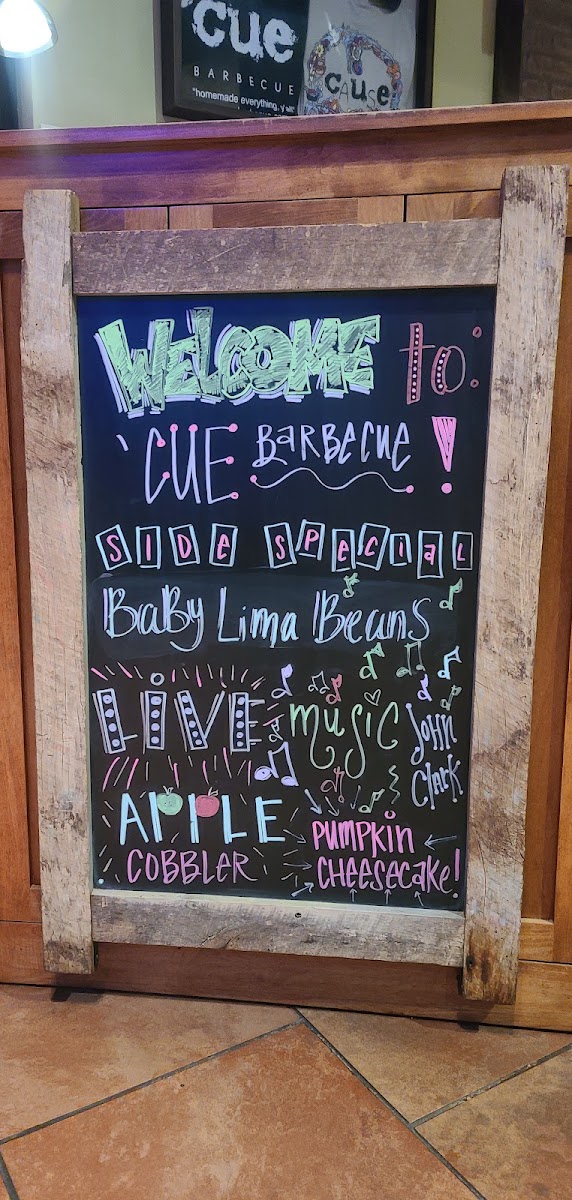 cue
BARBECUE
"homemade everything, y'all"
cUe
CAUSE
WELCOME to:
'CUE BARBECUE!
SIDE SPECIAL
BaBy Lima Beans
LIVE music John Clark
APPLE COBBLER
PUMPKIN CHEESECAKE!